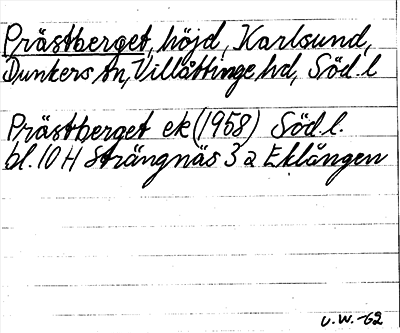 Prästberget, höjd, Karlsund,
Dunkers sn, Villåttinge hd, Söd. l
Prästberget ek (1958) Söd. l.
bl. 10 H Strängnäs 3 a Eklången
U.W. -62